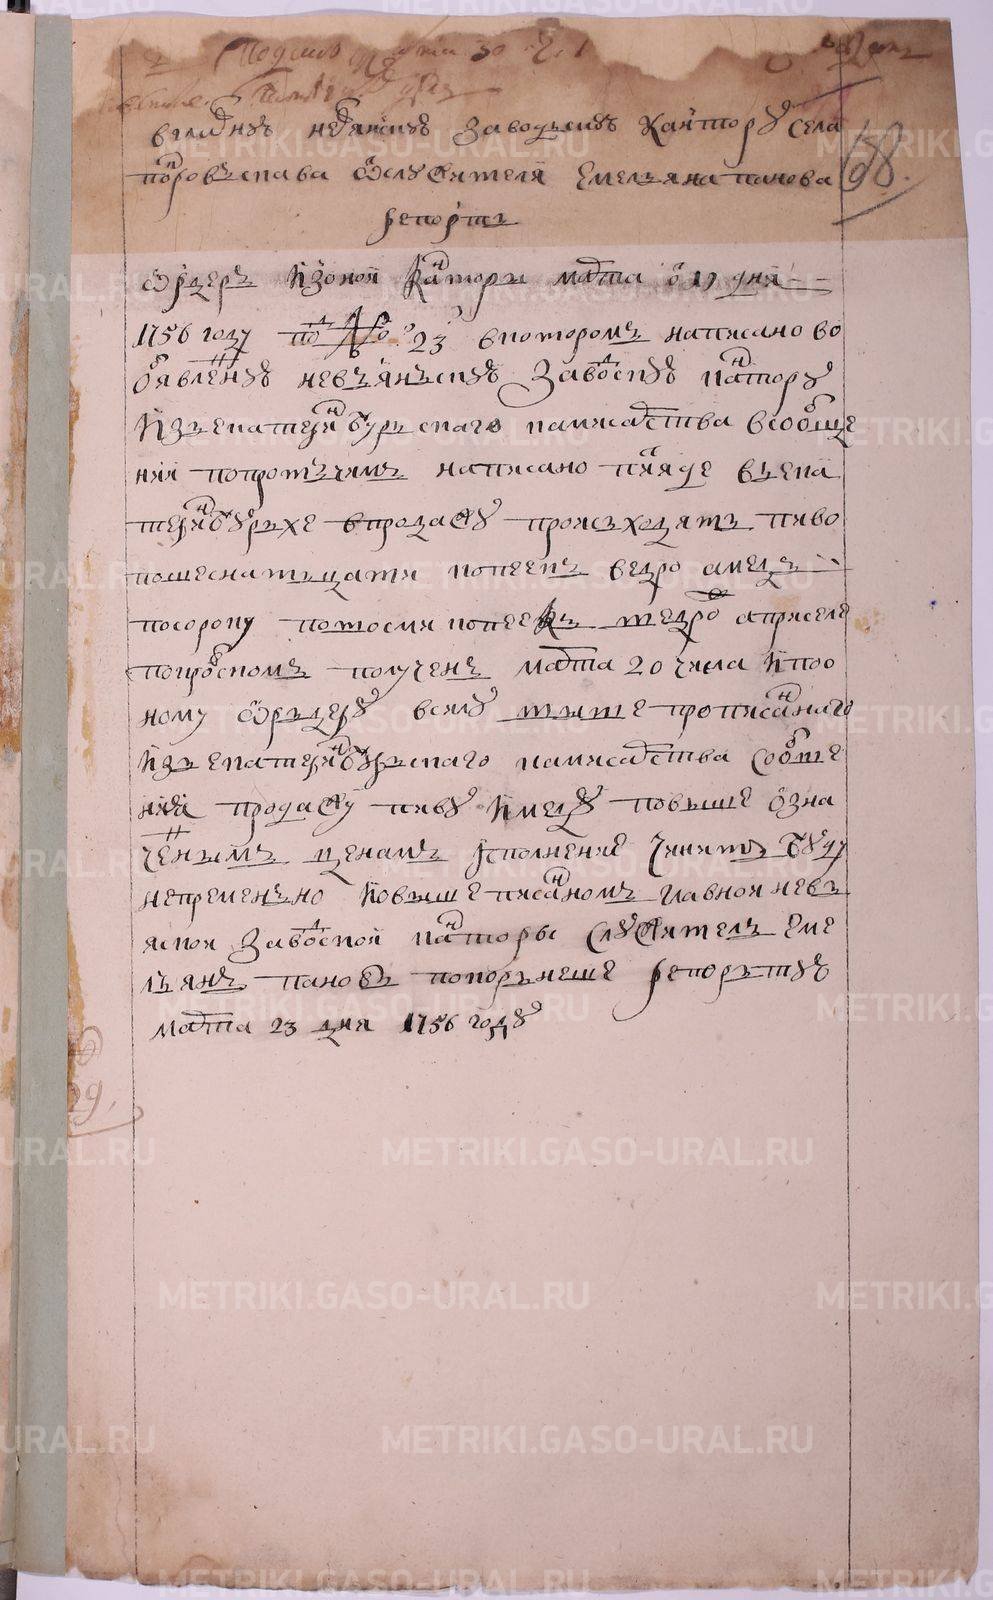 Подано марта 30 ч.
68.
вглавную невянскую заводскую кантору села
покровскаго ѿслужителя емельяна панова
репортъ
Ѿрдеръ изоной канторы марта ѿ 17 дня
1756 году под № 23 вкоторомъ написано во
ѿявленную невьянъскую заводскую кантору
изъ екатеринъбурскаго камисарства всообще
нии попротчимъ написано киаде въека
теринъбурхе впродажу происходятъ пиво
пошеснатъцати копеекъ ведро амедъ
посороку потосми копеекъ ведро априселе
покровскомъ полученъ марта 20 числа ипоо
ному ѿрьдеру всилу тыте прописаннаго
изъ екатеринбурьскаго камисарства сообще
нии продажу пиву имеду повыше озна
ченнымъ ценамъ исполнение чинить буду
непременъно иовышеписанномъ главной невь
яской заводской канторы служитель Еме
льянъ пановъ покорънеше репорътую
марта 23 дня 1756 году
29,
METRIKI.GASO-URAL.RU